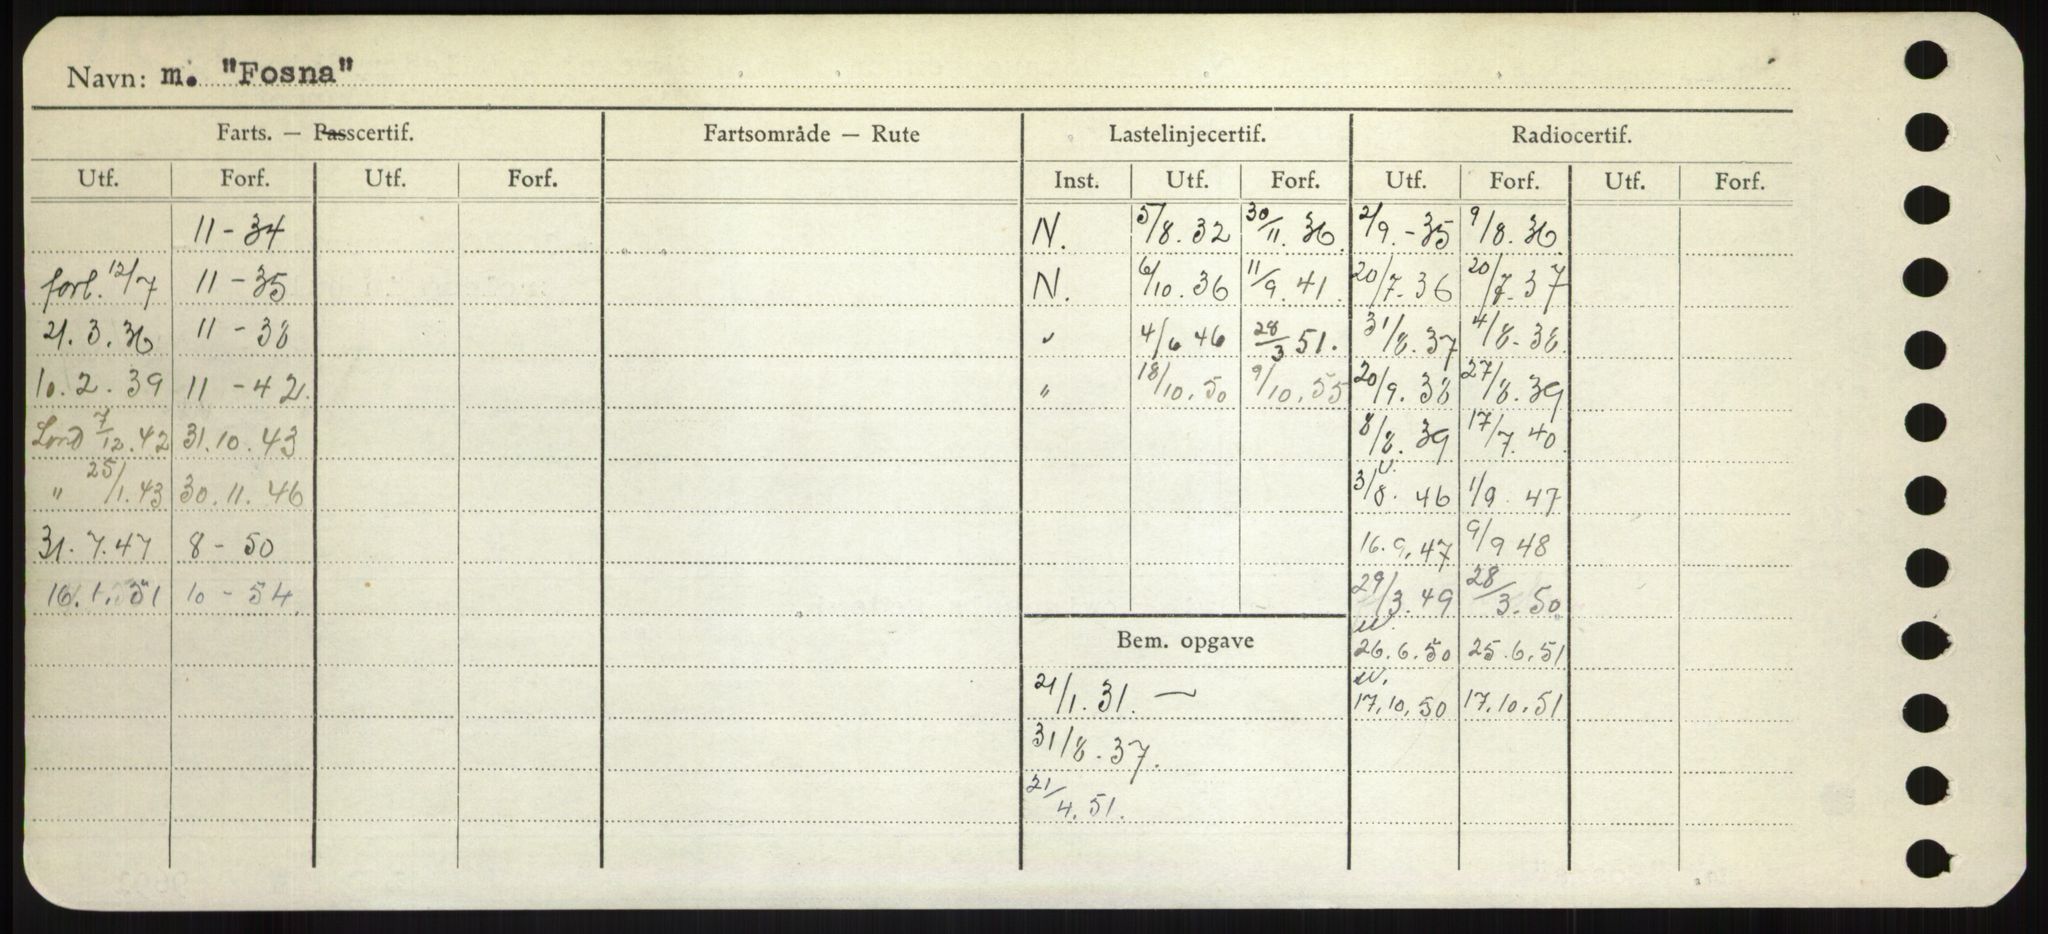 Navn: m. "Fosna"
Farts. — Passcertif. Fartsområde — Rute Lastelinjecertif. Radiocertif.
Utf. Forf. Utf. Forf. Inst. Utf. Forf. Utf. Forf. Utf. Forf.
11 - 34 N. 5/8. 32 30/11. 36 2/9. - 35 9/8. 36
forl. 12/7 11 - 35 N. 6/10. 36 11/9. 41 20/7. 36 20/7. 37
21. 3. 36 11 - 38 " 4/6 46 28/3 51. 31/8. 37 4/8. 38
10. 2. 39 11 - 42. " 18/10. 50 9/10. 55 20/9. 38 27/8. 39
Lond 7/12. 42 31. 10. 43 8/8. 39 17/7. 40
" 25/1. 43 30. 11. 46 u. 3/8. 46 1/9. 47
31. 7. 47 8 - 50 16. 9. 47 9/9 48
16. 1. 51 10 - 54. 29/3. 49 28/3. 50
Bem. opgave u. 26. 6. 50 25. 6. 51
21/1. 31. — u. 17. 10. 50 17. 10. 51
31/8. 37.
21/4. 51.